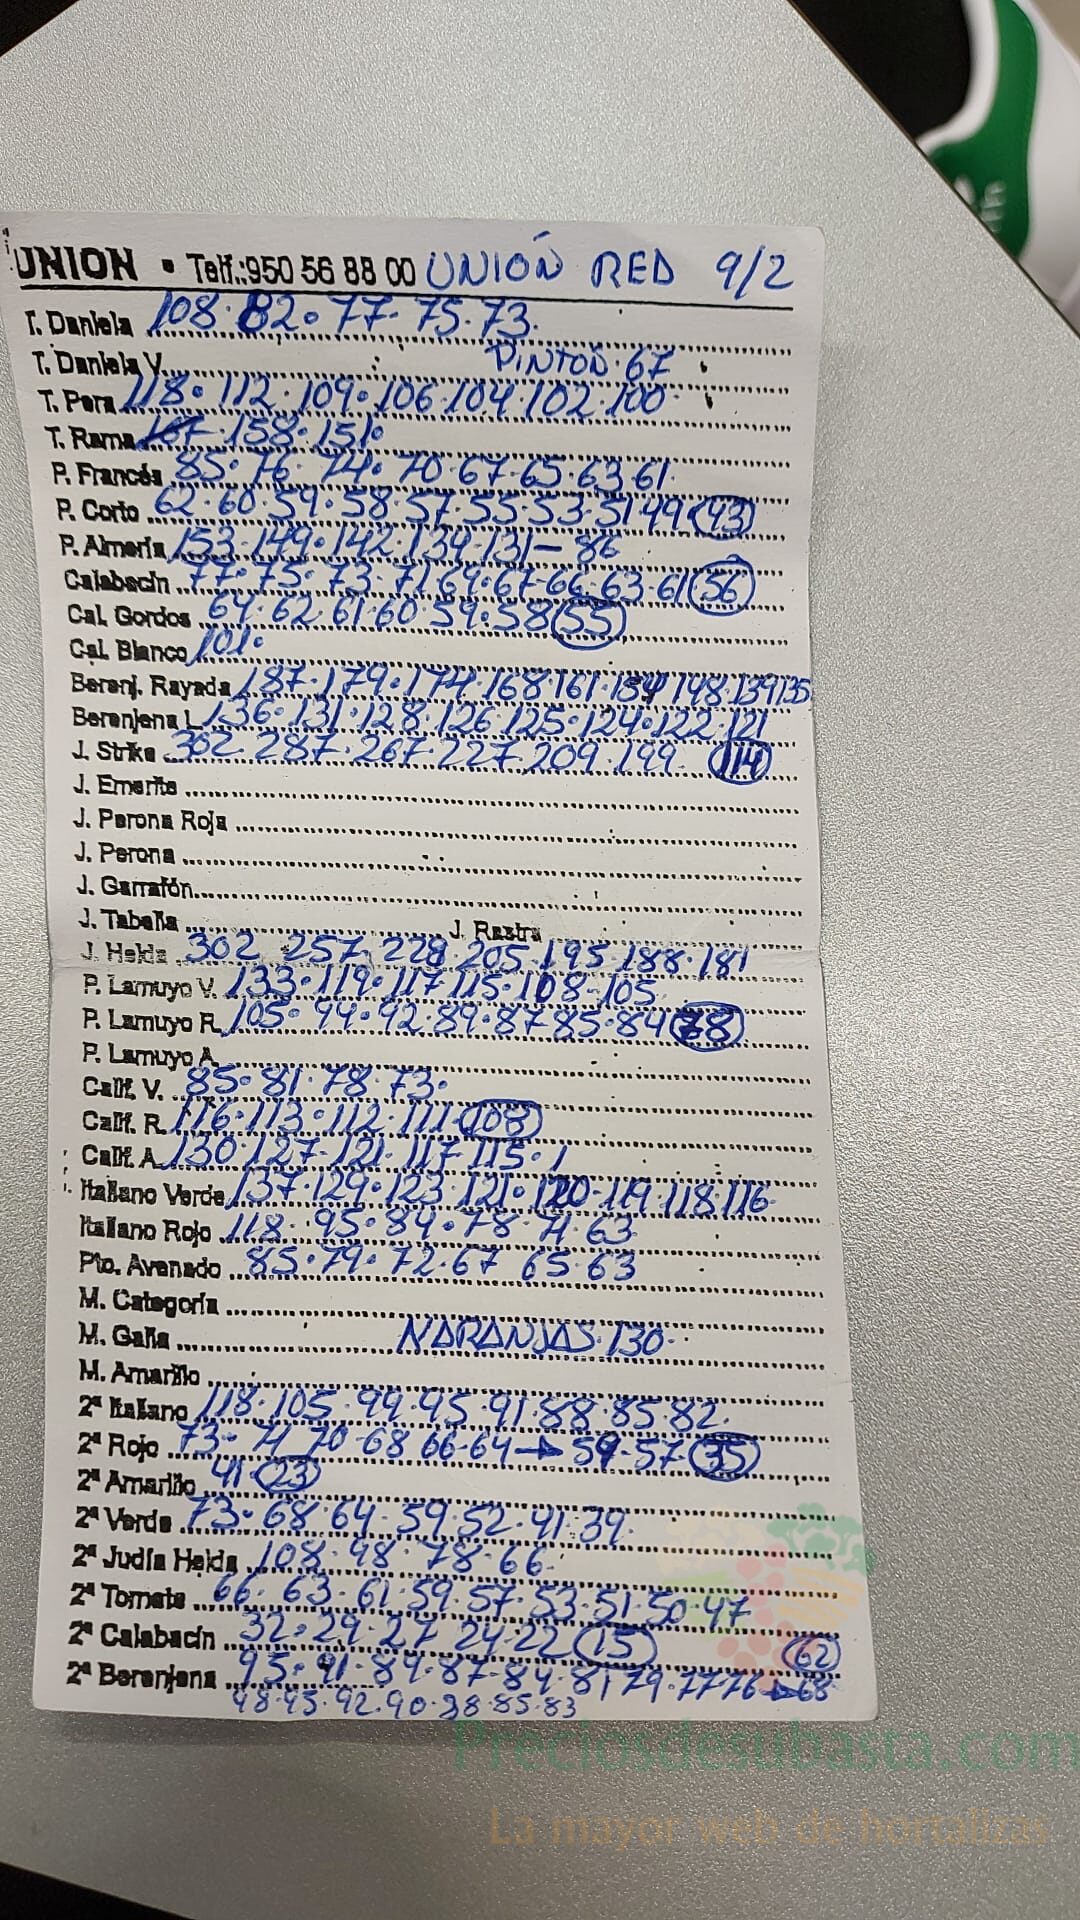 UNION • Telf.:950 56 88 00 UNIÓN RED 9/2
T. Daniela 108·82·77·75·73·
T. Daniela V. PINTOS·67
T. Pera 118·112·109·106·104·102·100·
T. Rama 167·158·151·
P. Francés 85·76·74·70·67·65·63·61·
P. Corto 62·60·59·58·57·55·53·51·49 (43)
P. Almería 153·149·142·139·131–86
Calabacín 77·75·73·71·69·67·66·63·61 (56)
Cal. Gordos 64·62·61·60·59·58 (55)
Cal. Blanco 101·
Berenj. Rayada 187·179·174·168·161·154·148·139·135
Berenjena L 136·131·128·126·125·124·122·121
J. Strike 302·287·267·227·209·199 (114)
J. Emerite
J. Perona Roja
J. Perona
J. Garrafón
J. Tabella J. Rastra
J. Helda 302·257·228·205·195·188·181
P. Lamuyo V. 133·119·117·115·108·105
P. Lamuyo R. 105·94·92·89·87·85·84 (78)
P. Lamuyo A.
Calif. V. 85·81·78·73·
Calif. R. 116·113·112·111 (108)
Calif. A. 130·127·121·117·115·1
Italiano Verde 137·129·123·121·120·119·118·116·
Italiano Rojo 118·95·84·78·71·63
Pto. Asado 85·79·72·67·65·63
M. Categoría
M. Galia NARANJAS·130·
M. Amarillo
2ª Italiano 118·105·99·95·91·88·85·82
2ª Rojo 73·71·70·68·66·64→59·57 (35)
2ª Amarillo 41 (23)
2ª Verde 73·68·64·59·52·41·39
2ª Judía Helda 108·98·78·66·
2ª Tomate 66·63·61·59·57·53·51·50·47
2ª Calabacín 32·29·27·24·22 (15) (62)
2ª Berenjena 95·91·89·87·84·81·79·77·76→68
98·95·92·90·88·85·83
Preciosdesubasta.com
La mayor web de hortalizas